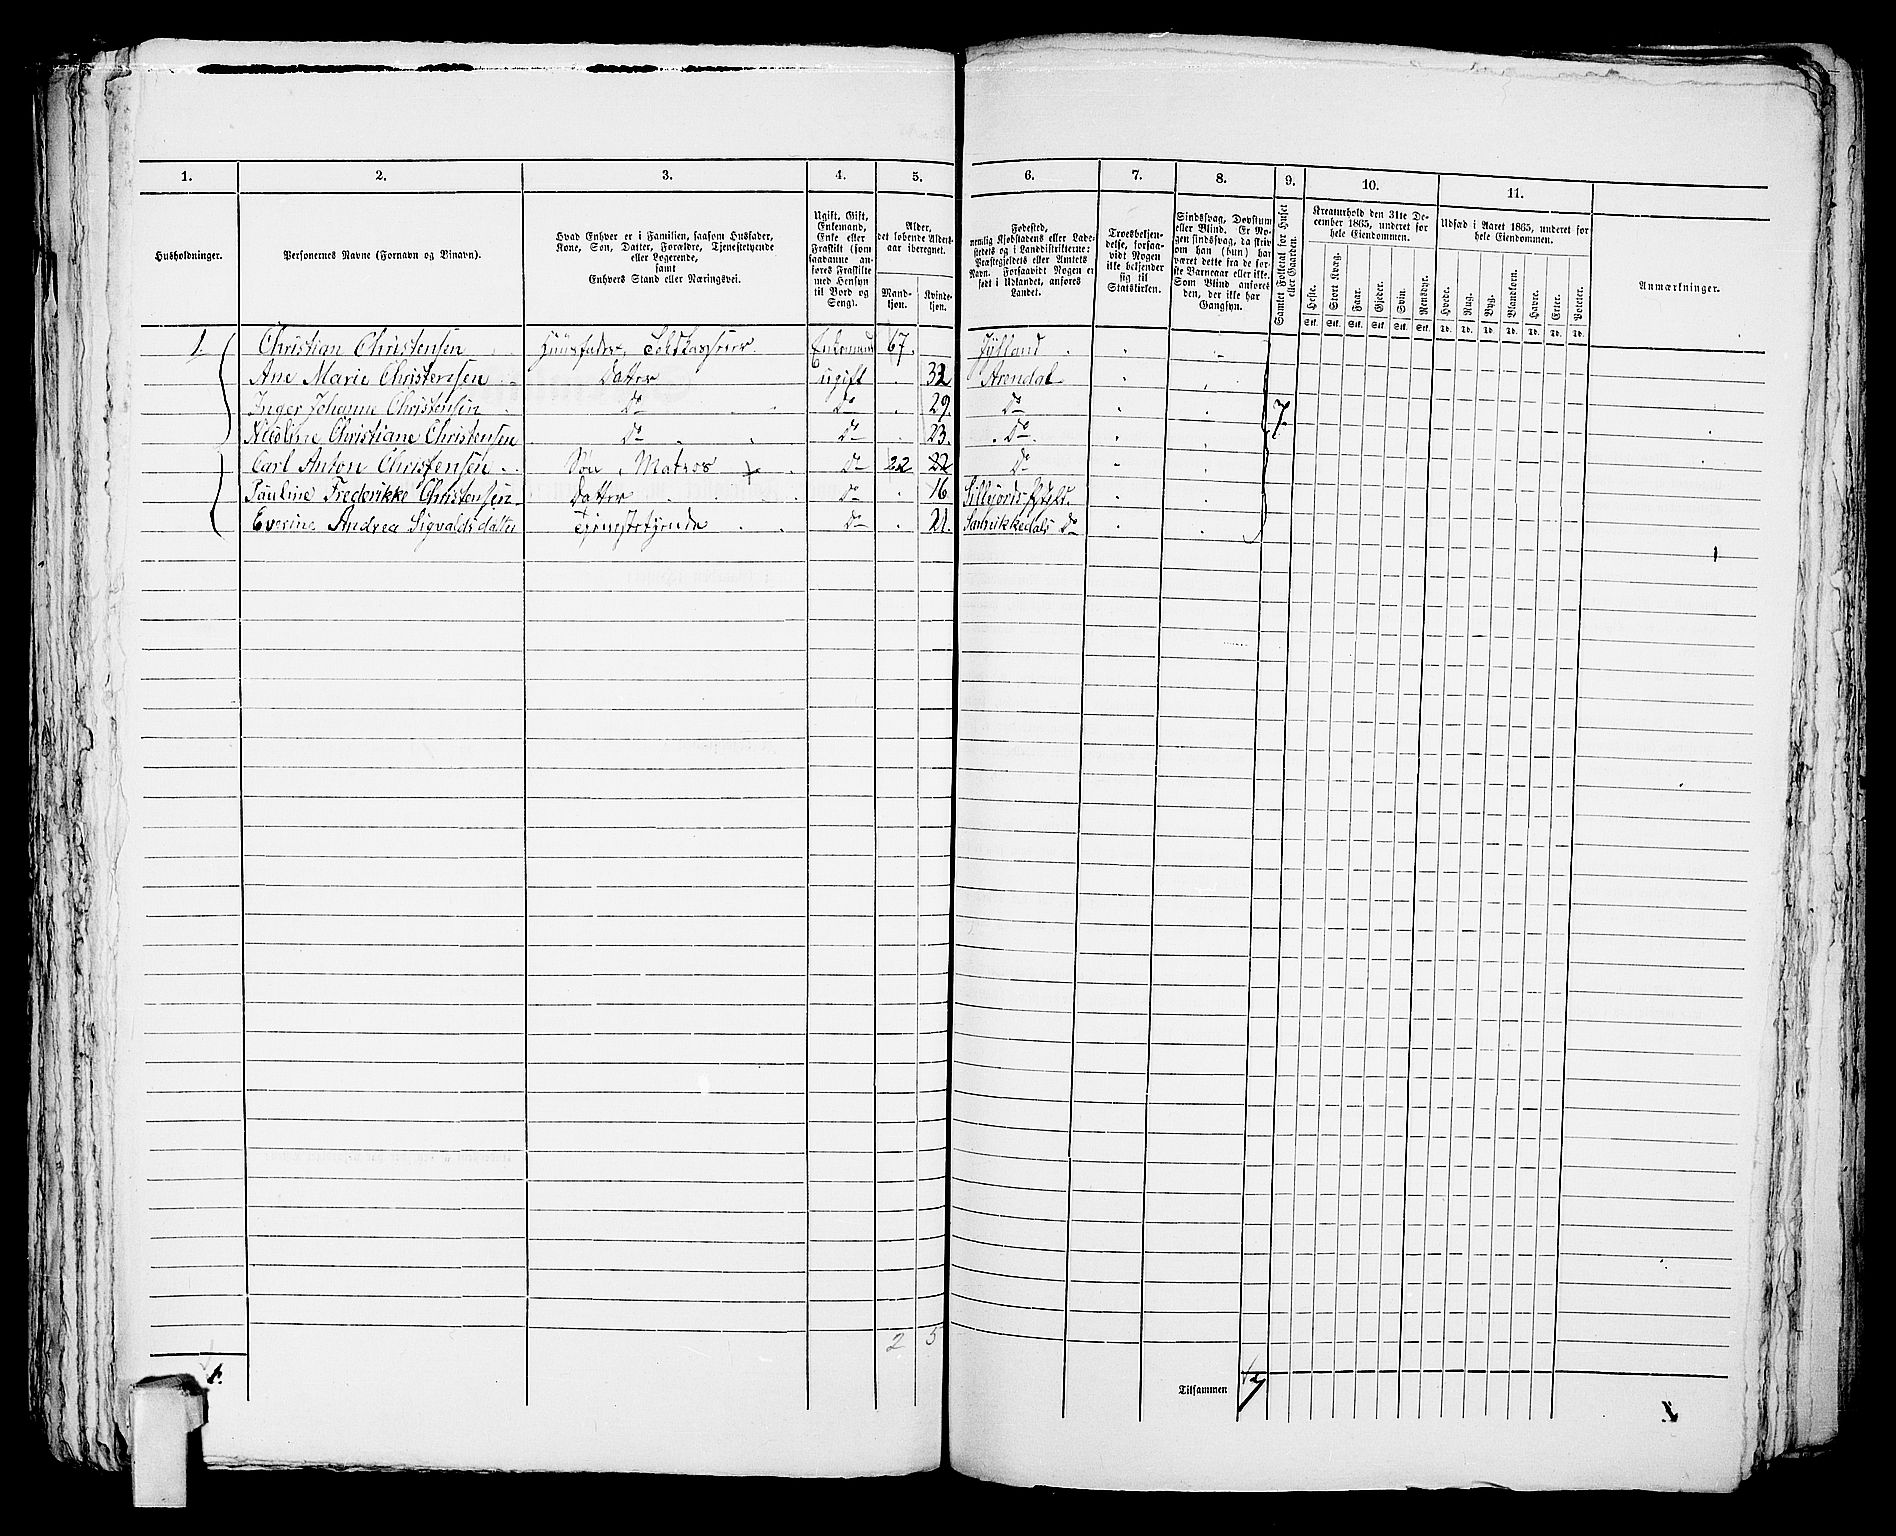 1. 2. 3. 4. 5. 6. 7. 8. 9. 10. 11.
Husholdninger.
Personernes Navne (Fornavn og Binavn).
Hvad Enhver er i Familien, saasom Husfader,
Kone, Søn, Datter, Forældre, Tjenestetyende
eller Logerende,
samt
Enhvers Stand eller Næringsvei.
Ugift, Gift,
Enkemand,
Enke eller
Fraskilt (som
saadanne an-
føres Fraskilte
med Hensyn
til Bord og
Seng).
Alder,
det løbende Alders-
aar iberegnet.
Mand-
kjøn.
Kvinde-
kjøn.
Fødested,
nemlig Kjøbstadens eller Lade-
stedets og i Landdistrikterne:
Præstegjeldets eller Amtets
Navn. Forsaavidt Nogen er
født i Udlandet, anføres
Landet.
Troesbekjen-
delse, forsaa-
vidt Nogen
ikke bekjender
sig til
Statskirken.
Sindssvag, Døvstum
eller Blind. Er No-
gen sindssvag, da skriv
om han (hun) har
været dette fra de før-
ste Barneaar eller ikke.
Som Blind anføres
den, der ikke har
Gangsyn.
Samlet Folketal for Huset
eller Gaarden.
Kreaturhold den 31te De-
cember 1865, underet for
hele Eiendommen.
Heste. Stort Kvæg. Faar. Gjeder. Svin. Rensdyr.
Stk. Stk. Stk. Stk. Stk. Stk.
Udsæd i Aaret 1865, underet for
hele Eiendommen.
Hvede. Rug. Byg. Blandkorn. Havre. Erter. Poteter.
Td. Td. Td. Td. Td. Td. Td.
Anmærkninger.
1 Christian Christensen Huusfader, Toldkasserer Enkemand 67. Jylland
Ane Marie Christensen Datter ugift 32 Arendal
Inger Johanne Christensen Do Do 29. Do 7
Nicoline Christiane Christensen Do Do 23. Do
Carl Anton Christensen Søn, Matros Do 22 22 Do
Pauline Frederikke Christensen Datter Do 16
Everine Andrea Sigvaldsdatter Tjenestetyende Do 21. Do
2 5
1.
Tilsammen 7